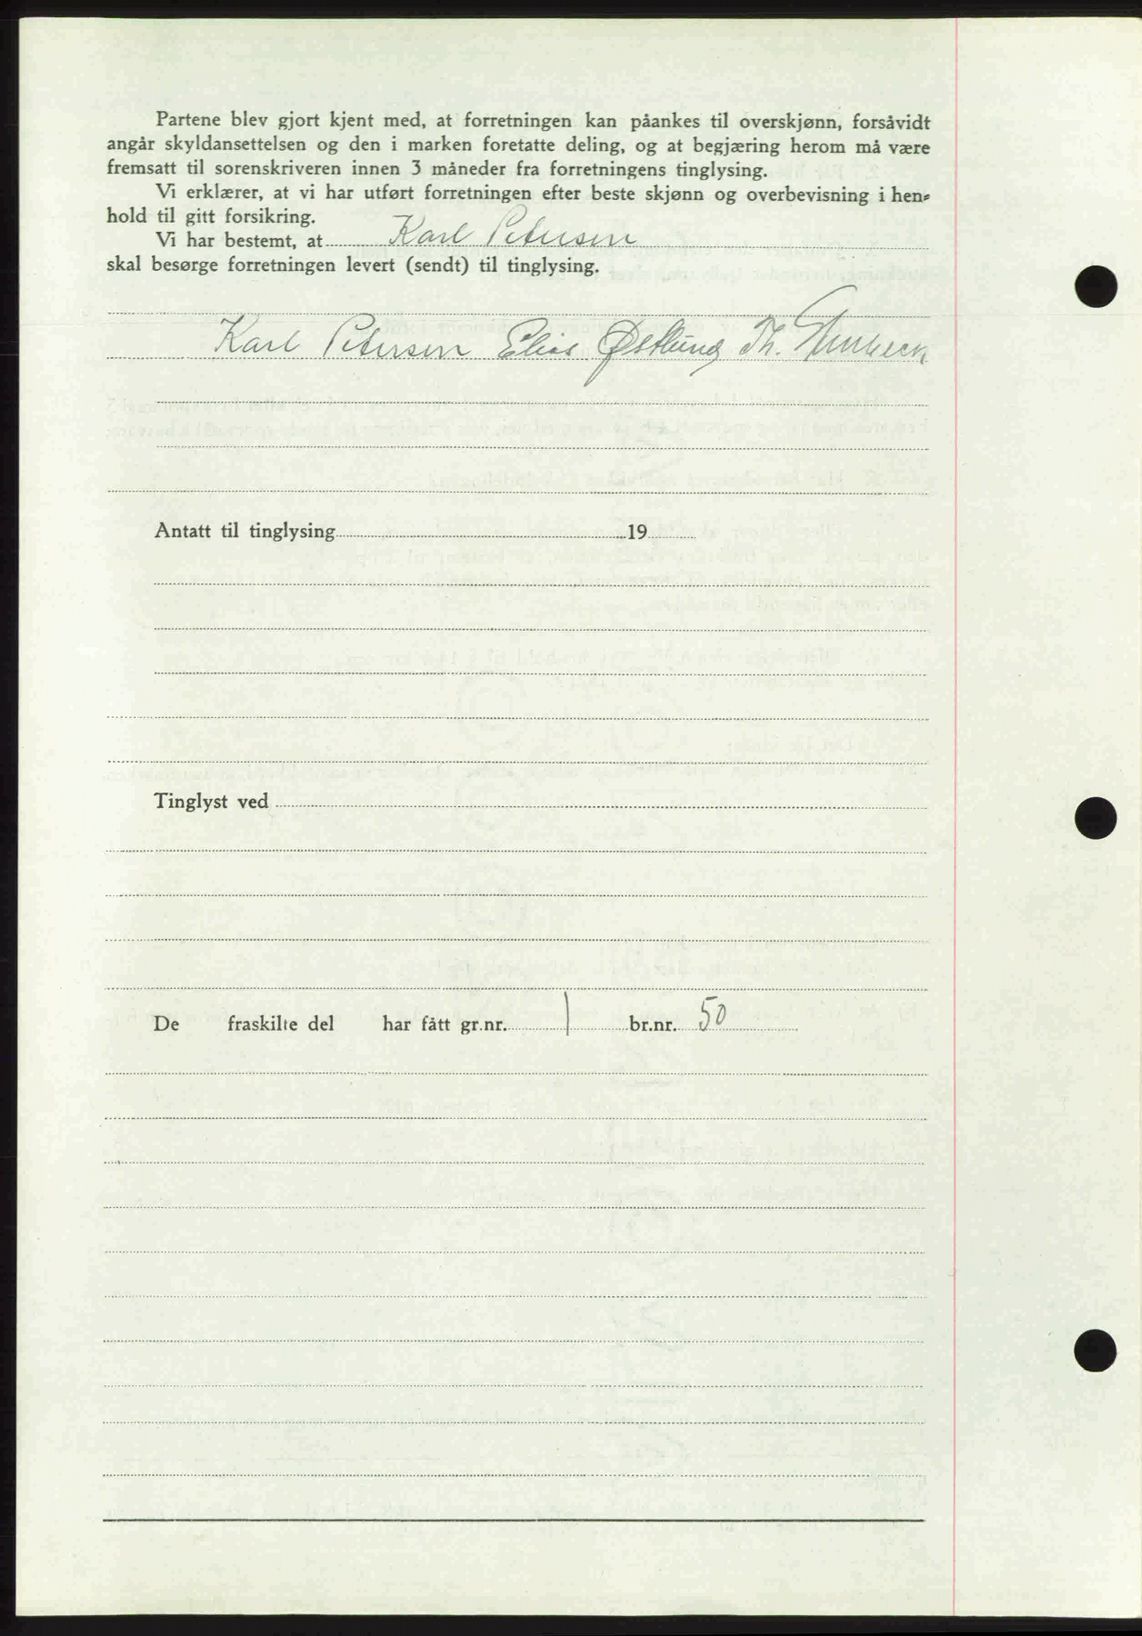 Partene blev gjort kjent med, at forretningen kan påankes til overskjønn, forsåvidt
angår skyldansettelsen og den i marken foretatte deling, og at begjæring herom må være
fremsatt til sorenskriveren innen 3 måneder fra forretningens tinglysing.
Vi erklærer, at vi har utført forretningen efter beste skjønn og overbevisning i hen-
hold til gitt forsikring.
Vi har bestemt, at Karl Petersen
skal besørge forretningen levert (sendt) til tinglysing.
Karl Petersen Elias Østlund Th.
Antatt til tinglysing 19
Tinglyst ved
De fraskilte del har fått gr.nr. 1 br.nr. 50